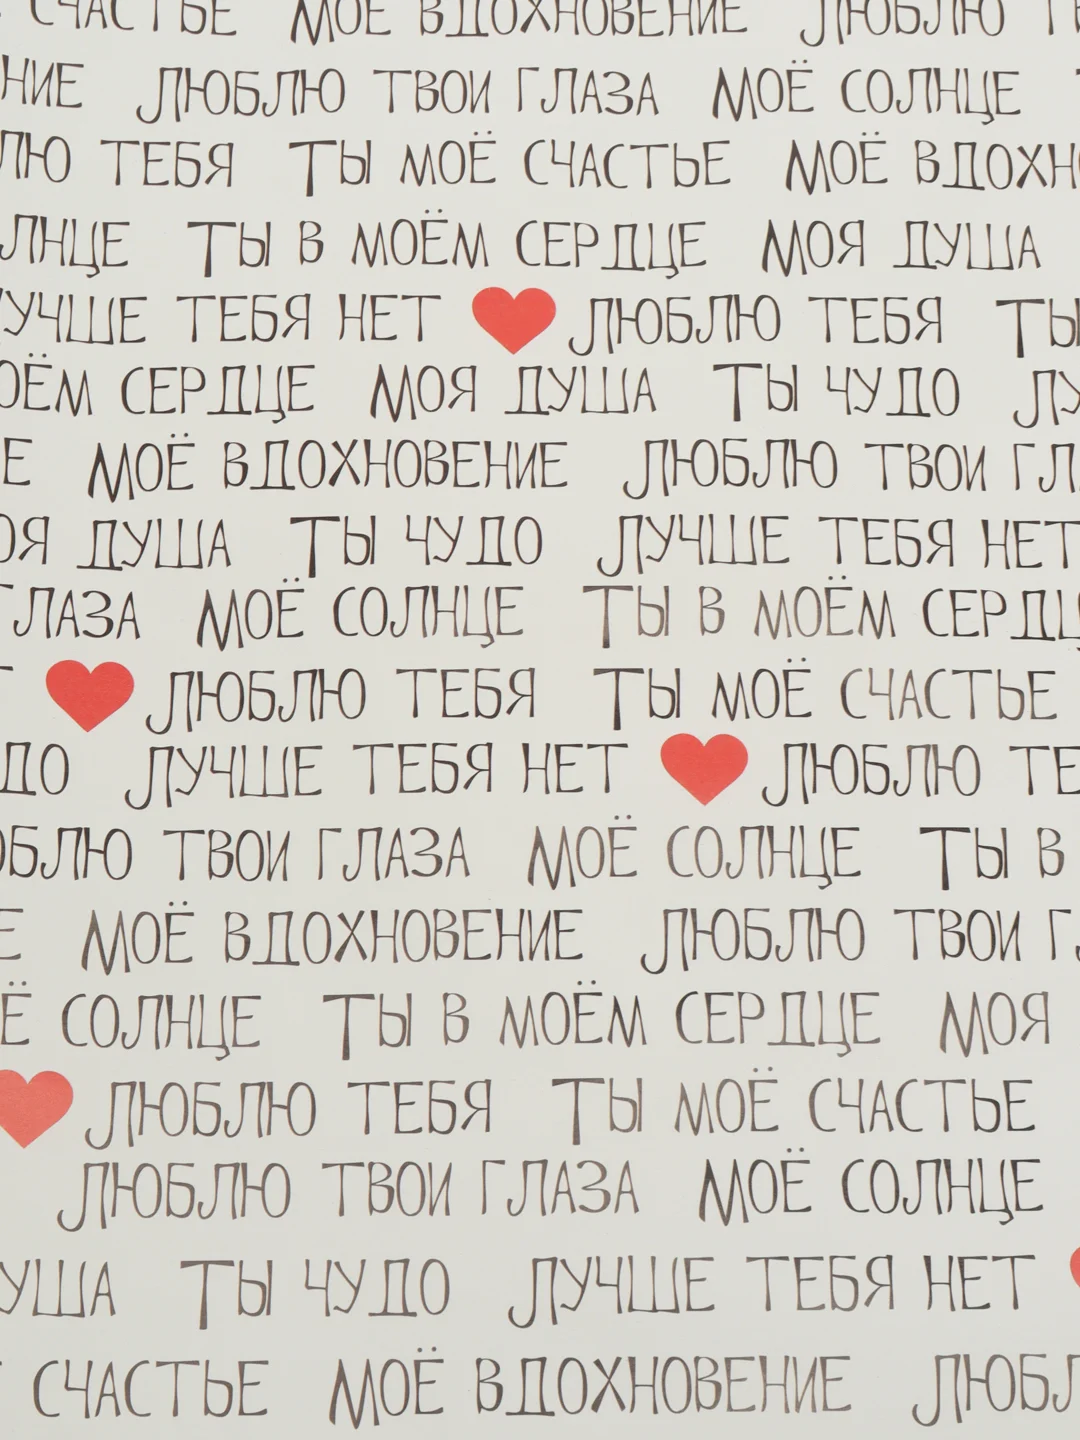 СЧАСТЬЕ МОЁ ВДОХНОВЕНИЕ ЛЮБЛЮ
НИЕ ЛЮБЛЮ ТВОИ ГЛАЗА МОЁ СОЛНЦЕ
ЛЮ ТЕБЯ ТЫ МОЁ СЧАСТЬЕ МОЁ ВДОХН
ЛНЦЕ ТЫ В МОЁМ СЕРДЦЕ МОЯ ДУША
УЧШЕ ТЕБЯ НЕТ ЛЮБЛЮ ТЕБЯ ТЫ
ОЁМ СЕРДЦЕ МОЯ ДУША ТЫ ЧУДО ЛУ
Е МОЁ ВДОХНОВЕНИЕ ЛЮБЛЮ ТВОИ ГЛ
ОЯ ДУША ТЫ ЧУДО ЛУЧШЕ ТЕБЯ НЕТ
ГЛАЗА МОЁ СОЛНЦЕ ТЫ В МОЁМ СЕРДЦ
Т ЛЮБЛЮ ТЕБЯ ТЫ МОЁ СЧАСТЬЕ
ДО ЛУЧШЕ ТЕБЯ НЕТ ЛЮБЛЮ ТЕ
ЮБЛЮ ТВОИ ГЛАЗА МОЁ СОЛНЦЕ ТЫ В
Е МОЁ ВДОХНОВЕНИЕ ЛЮБЛЮ ТВОИ ГЛ
Ё СОЛНЦЕ ТЫ В МОЁМ СЕРДЦЕ МОЯ
ЛЮБЛЮ ТЕБЯ ТЫ МОЁ СЧАСТЬЕ
ЛЮБЛЮ ТВОИ ГЛАЗА МОЁ СОЛНЦЕ
УША ТЫ ЧУДО ЛУЧШЕ ТЕБЯ НЕТ
СЧАСТЬЕ МОЁ ВДОХНОВЕНИЕ ЛЮБЛ